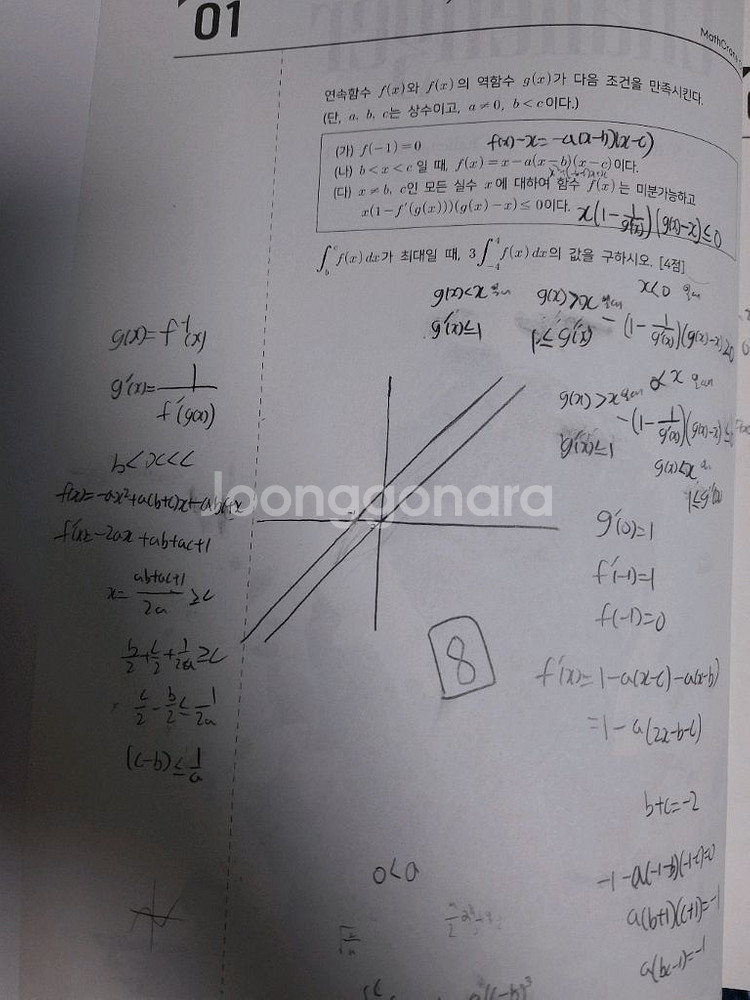 01
MathCra
연속함수 f(x)와 f(x)의 역함수 g(x)가 다음 조건을 만족시킨다.
(단, a, b, c는 상수이고, a≠0, b<c이다.)
(가) f(-1)=0
f(x)-x=-a(x-b)(x-c)
(나) b<x<c일 때, f(x)=x-a(x-b)(x-c)이다.
(다) x≠b, c인 모든 실수 x에 대하여 함수 f(x)는 미분가능하고
x(1-f'(g(x)))(g(x)-x)≤0이다.
x(1-1/g'(x))(g(x)-x)≤0
∫_b^c f(x)dx가 최대일 때, 3∫_{-4}^4 f(x)dx의 값을 구하시오. [4점]
g(x)<x
g(x)>x
x<0
g'(x)≤1
1≤g'(x)
-(1-1/g'(x))(g(x)-x)
g(x)=f⁻¹(x)
g'(x)=1/f'(g(x))
g(x)>x
0<x
-(1-1/g'(x))(g(x)-x)≤
g'(x)≤1
g(x)<x
1≤g'(x)
b<x<c
f(x)=-ax²+a(b+c)x-abc+x
f'(x)=-2ax+ab+ac+1
x=(ab+ac+1)/2a≥c
b/2+c/2+1/2a≥c
c/2-b/2≤1/2a
(c-b)≤1/a
Joonggonara
g'(0)=1
f'(-1)=1
f(-1)=0
8
f'(x)=1-a(x-c)-a(x-b)
=1-a(2x-b-c)
b+c=-2
0<a
-1-a(-1-b)(-1-c)=0
a(b+1)(c+1)=-1
a(bc-1)=-1